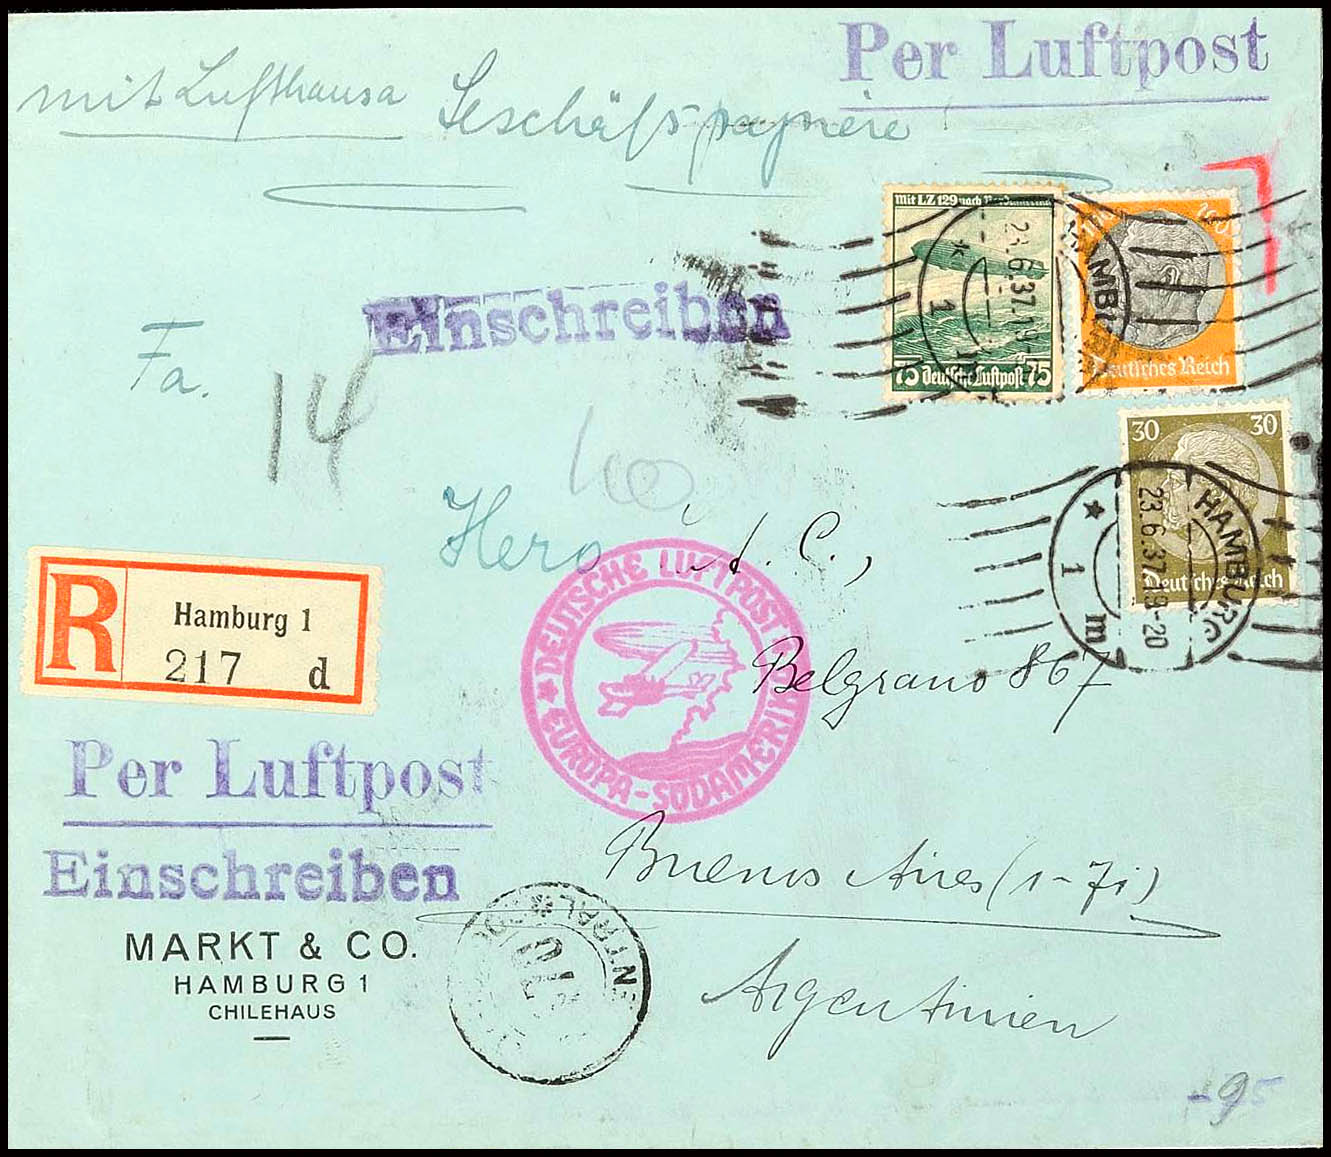 Per Luftpost
mit Lufthansa Geschäftspapiere
Mit LZ 129 nach Nordamerika
75 Deutsche Luftpost 75
100
Deutsches Reich
HAMBURG 1
23.6.37.19-20
Einschreiben
Fa.
14
30 30
Deutsches Reich
HAMBURG
23.6.37.19-20
* 1 m
Hero A. C.,
DEUTSCHE LUFTPOST
* EUROPA-SÜDAMERIKA
Belgrano 867
R
Hamburg 1
217 d
Per Luftpost
Einschreiben
Buenos Aires (1-7i)
Argentinien
MARKT & CO.
HAMBURG 1
CHILEHAUS
-95